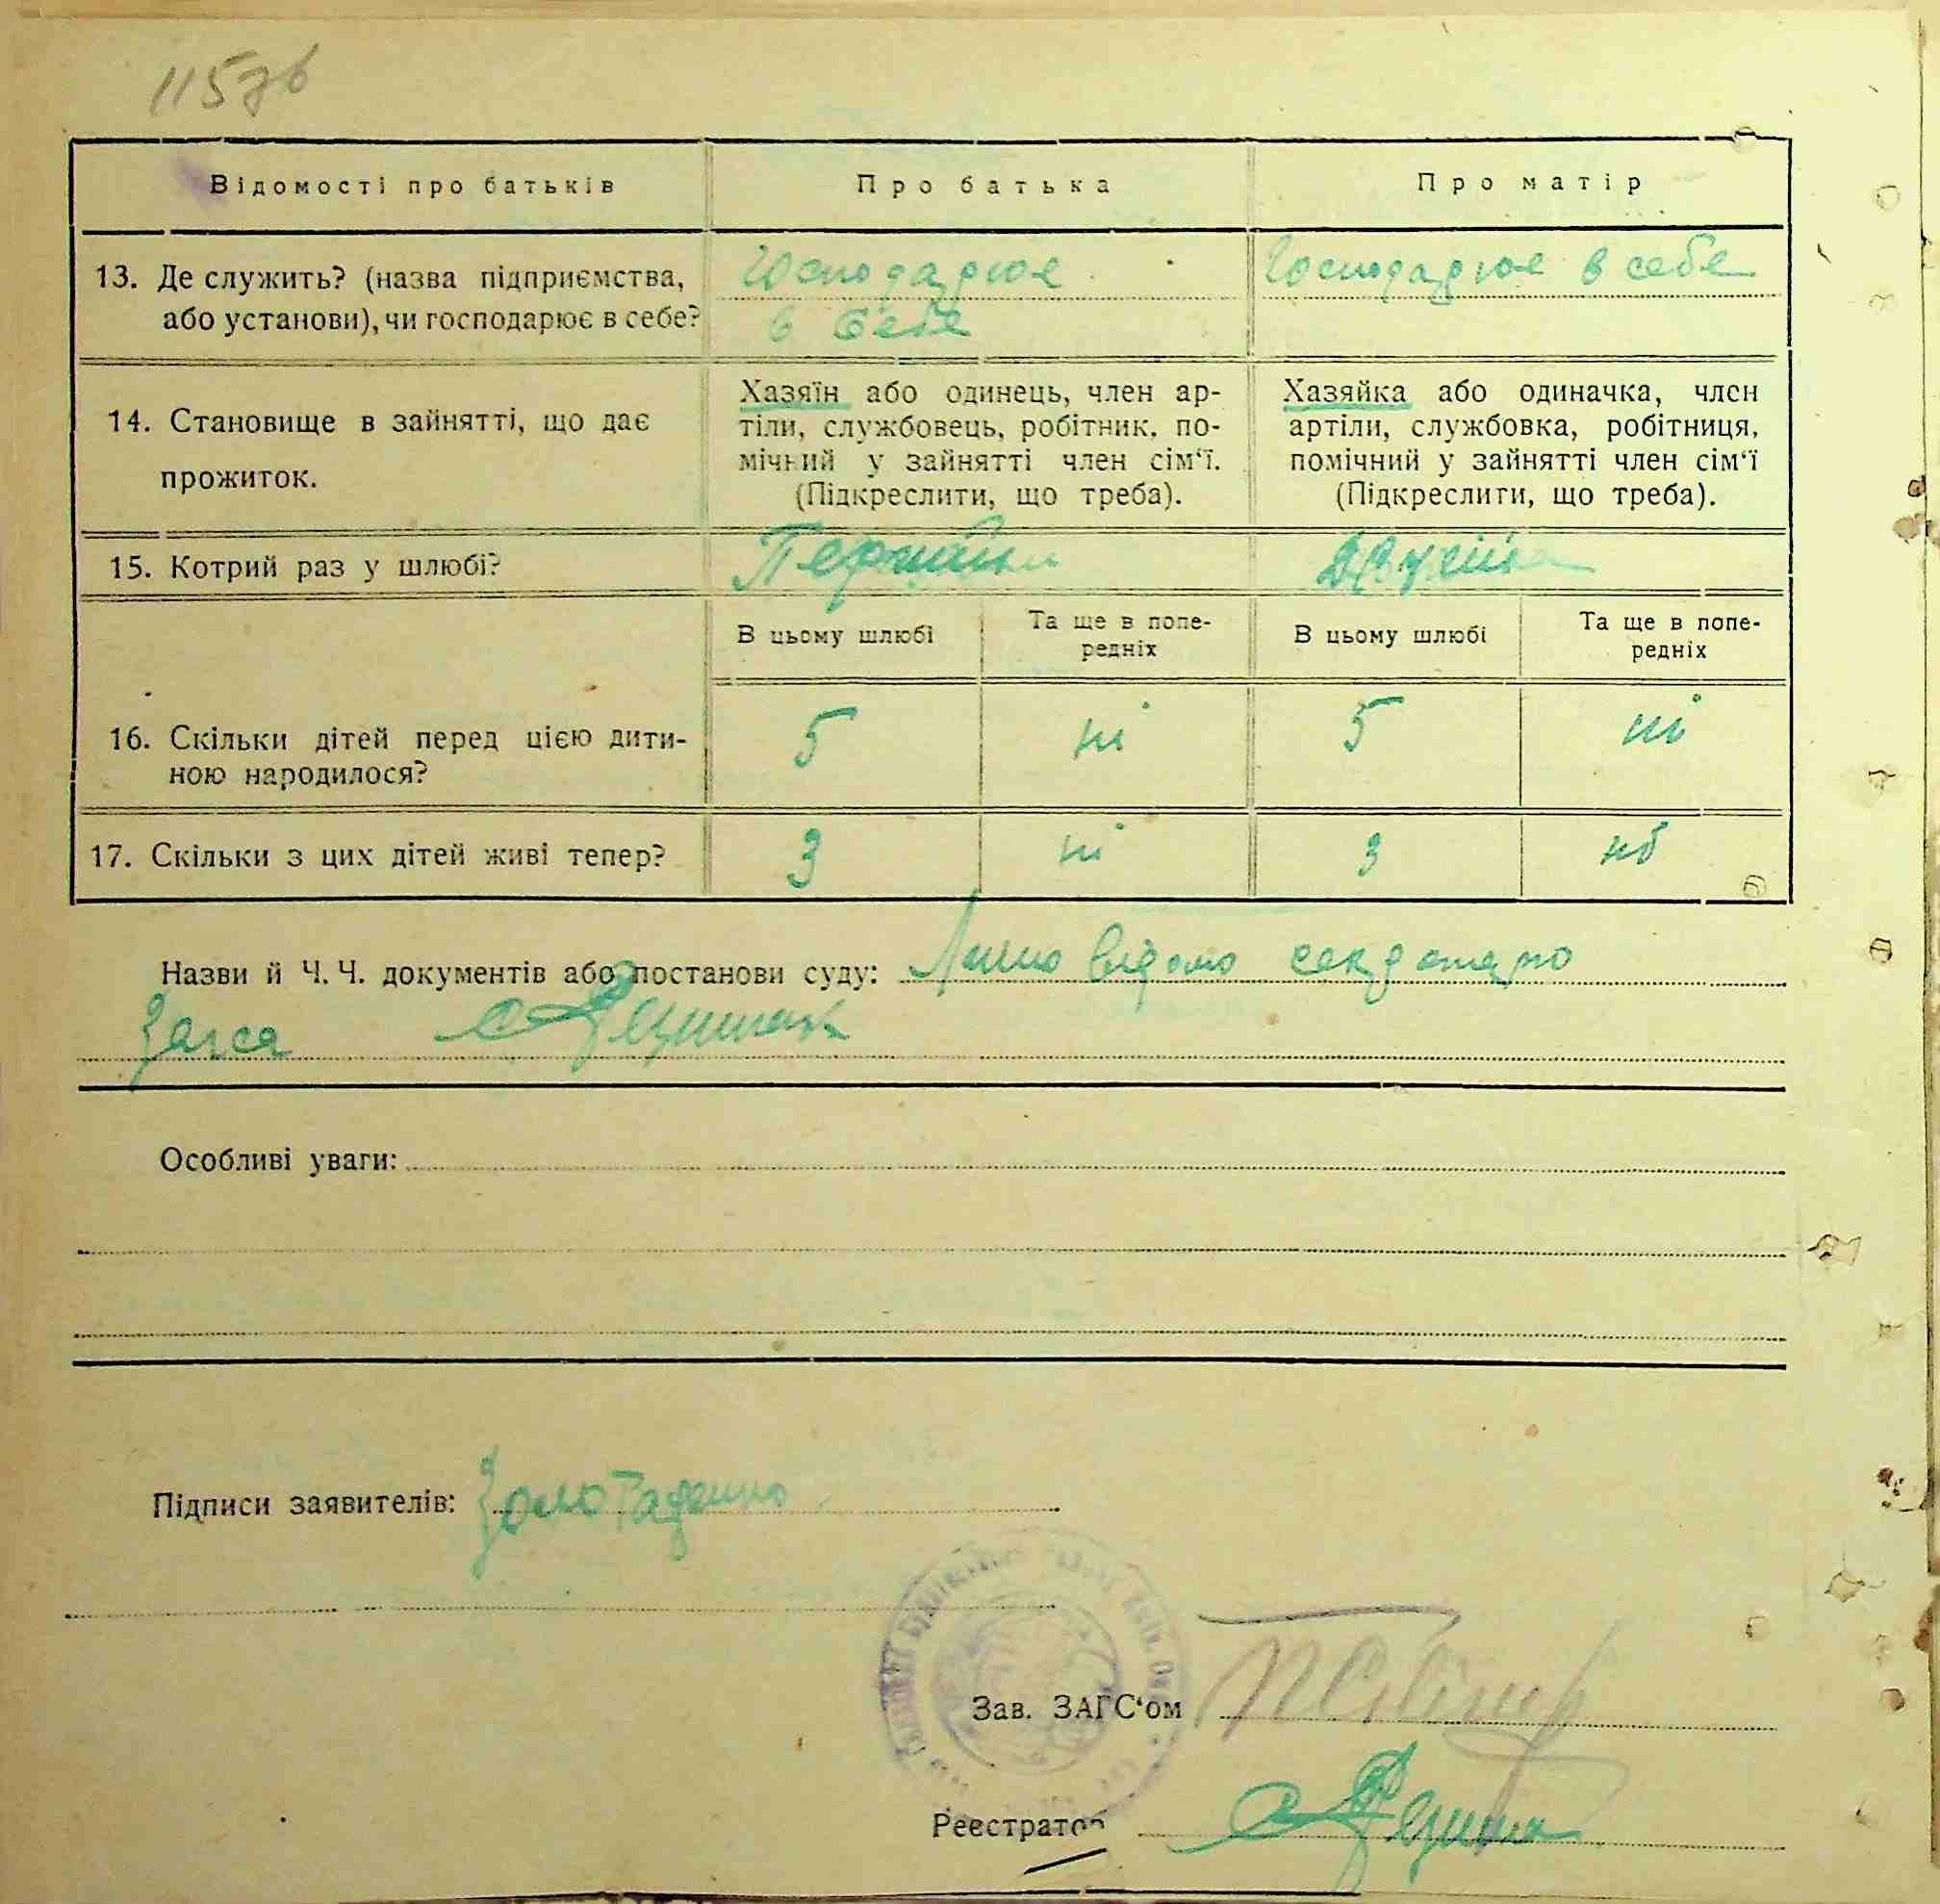 115зв
Відомості про батьків Про батька Про матір
13. Де служить? (назва підприємства, Господарює Господарює в себе
або установи), чи господарює в себе? в себе
Хазяїн або одинець, член ар- Хазяйка або одиначка, член
14. Становище в зайнятті, що дає тіли, службовець, робітник, по- артіли, службовка, робітниця,
мічний у зайнятті член сім‘ї. помічний у зайнятті член сім‘ї
прожиток. (Підкреслити, що треба). (Підкреслити, що треба).
15. Котрий раз у шлюбі?
В цьому шлюбі Та ще в попе- В цьому шлюбі Та ще в попе-
редніх редніх
16. Скільки дітей перед цією дити- 5 ні 5 ні
ною народилося?
17. Скільки з цих дітей живі тепер? 3 ні 3
Назви й Ч. Ч. документів або постанови суду: відомо
Загса
Особливі уваги:
Підписи заявителів:
Зав. ЗАГС‘ом
Реєстратор